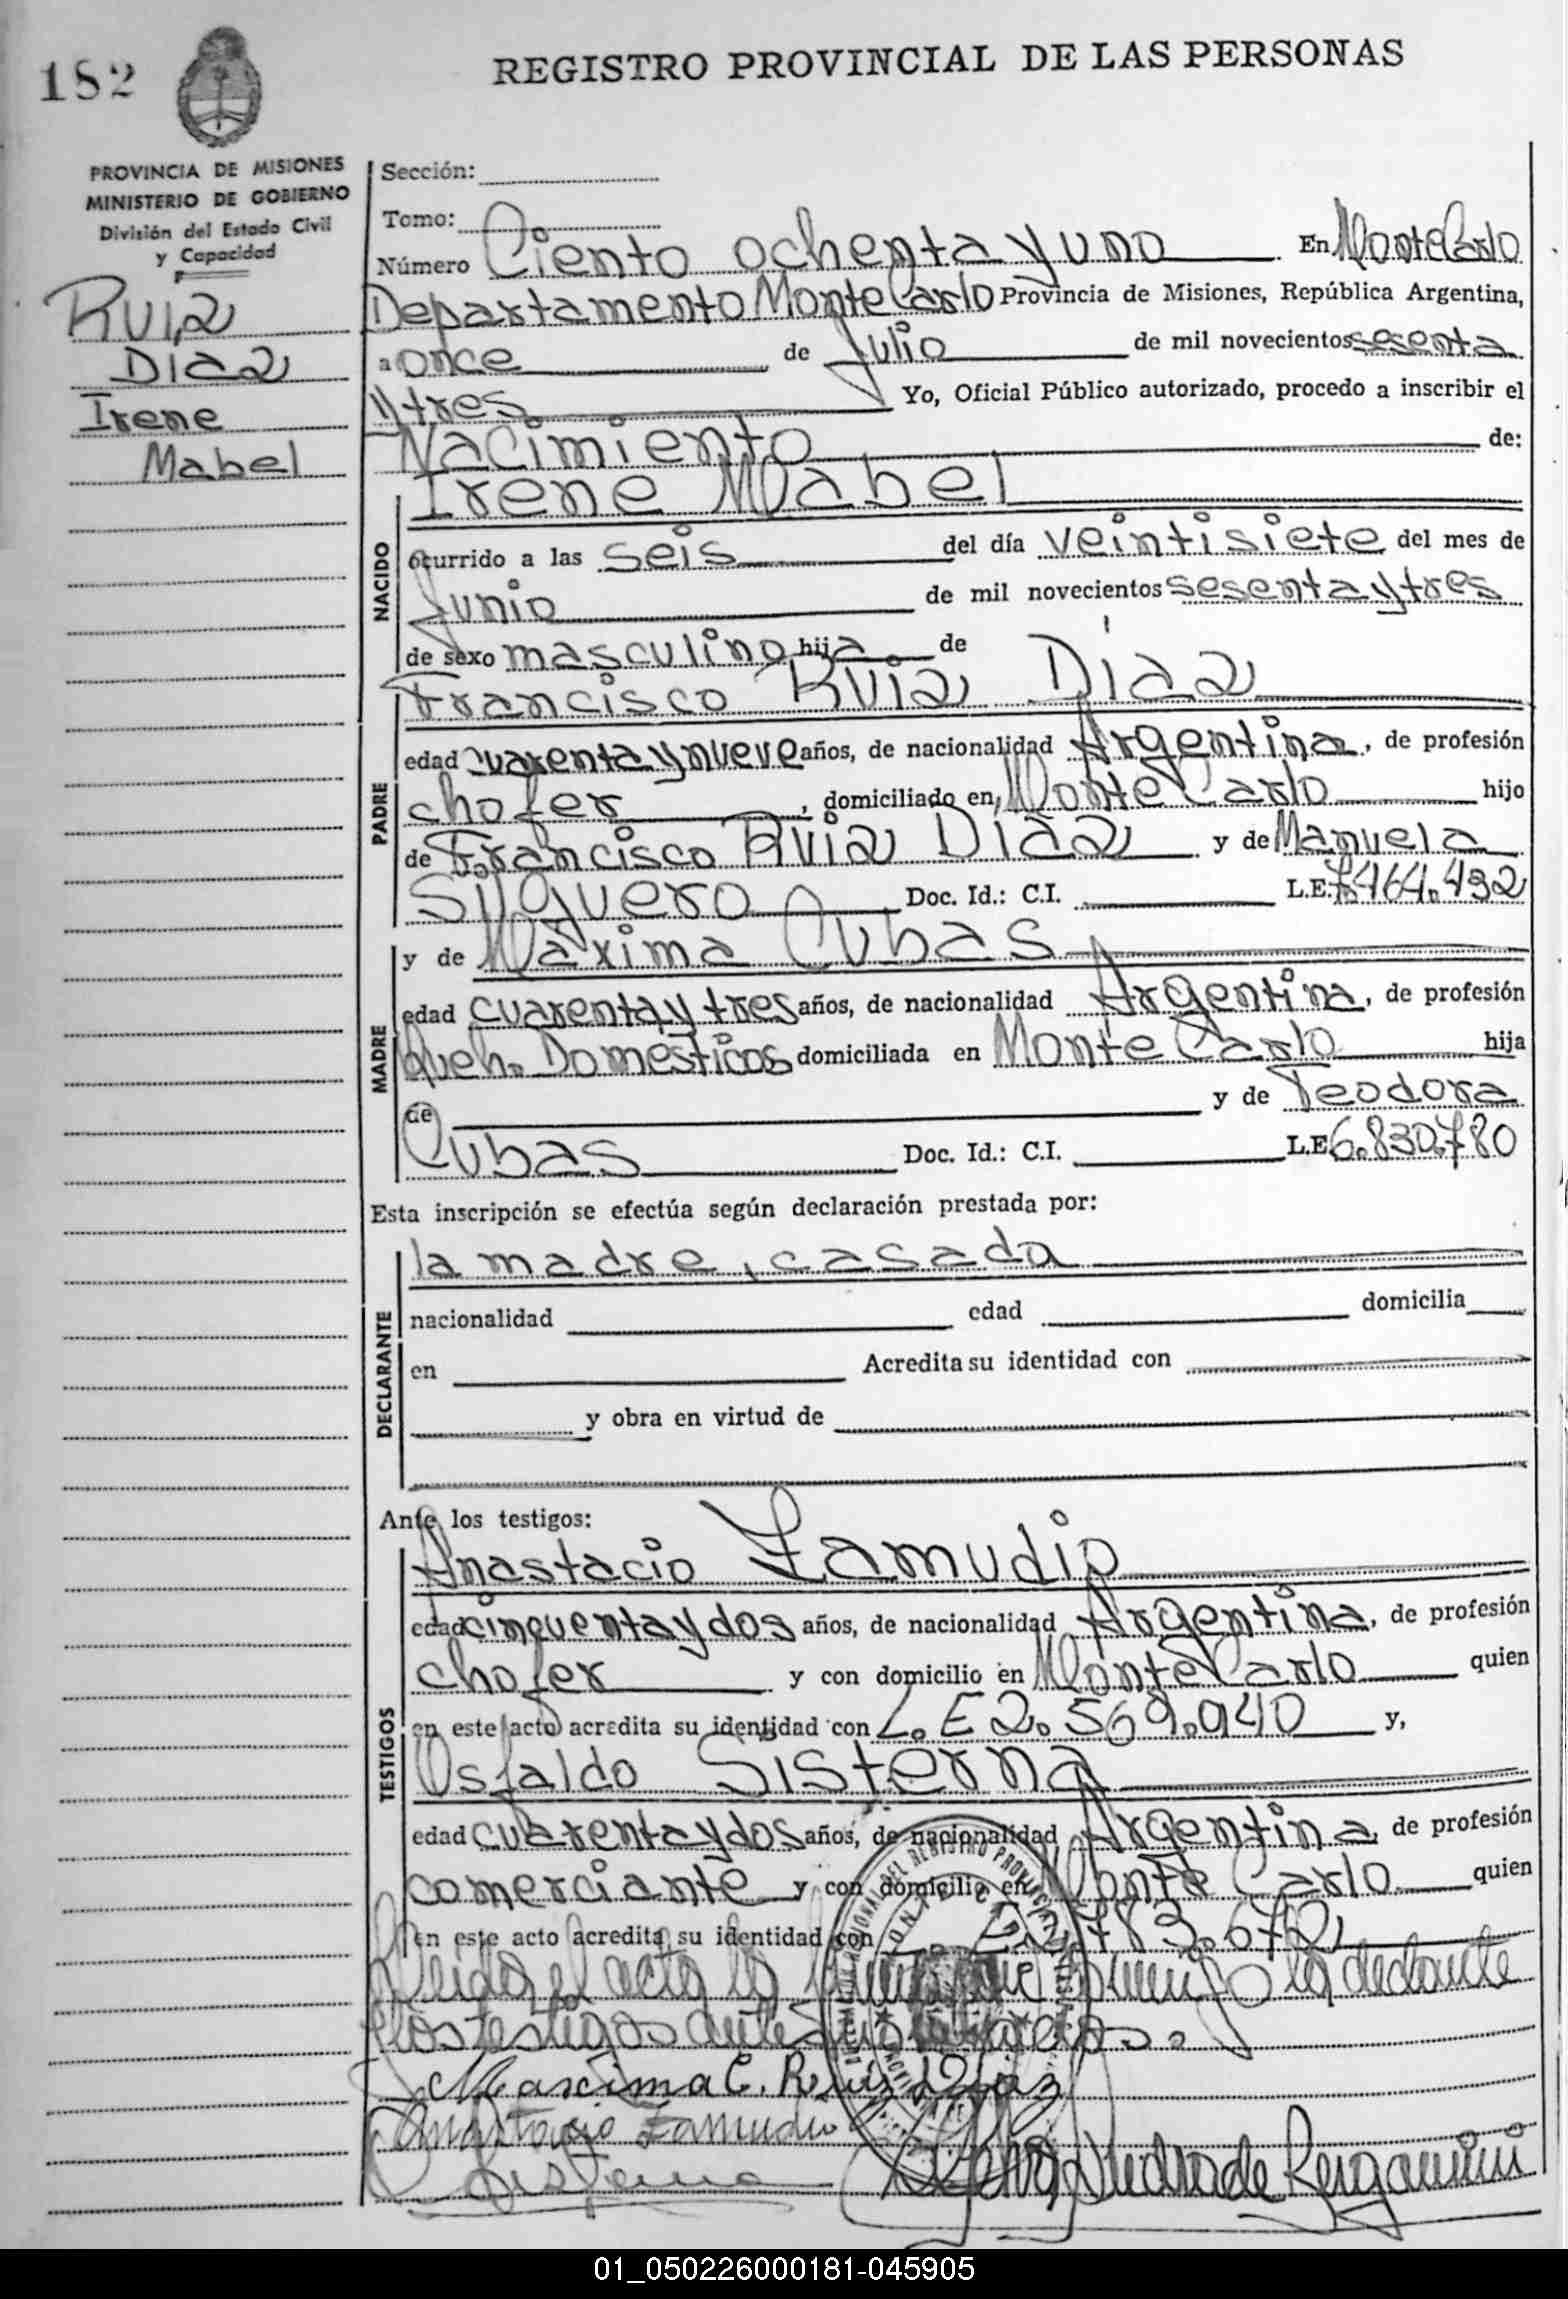 182
REGISTRO PROVINCIAL DE LAS PERSONAS
PROVINCIA DE MISIONES
MINISTERIO DE GOBIERNO
División del Estado Civil
y Capacidad
Ruiz
Diaz
Irene
Mabel
Sección:
Tomo:
Número Ciento ochenta y uno En Monte Carlo
Departamento Monte Carlo Provincia de Misiones, República Argentina,
a once de Julio de mil novecientos sesenta
y tres Yo, Oficial Público autorizado, procedo a inscribir el
Nacimiento de:
Irene Mabel
NACIDO
ocurrido a las seis del día veintisiete del mes de
Junio de mil novecientos sesenta y tres
de sexo masculino hija de
Francisco Ruiz Diaz
PADRE
edad cuarenta y nueve años, de nacionalidad Argentina, de profesión
chofer, domiciliado en, Monte Carlo hijo
de Francisco Ruiz Diaz y de Manuela
Silguero Doc. Id.: C.I. L.E. 7.464.492
y de Máxima Cubas
MADRE
edad cuarenta y tres años, de nacionalidad Argentina, de profesión
Queh. Domesticos domiciliada en Monte Carlo hija
de y de Teodora
Cubas Doc. Id.: C.I. L.E. 6.830.780
Esta inscripción se efectúa según declaración prestada por:
DECLARANTE
la madre, casada
nacionalidad edad domicilia
en Acredita su identidad con
y obra en virtud de
Ante los testigos:
TESTIGOS
Anastacio Zamudio
edad cincuenta y dos años, de nacionalidad Argentina, de profesión
chofer y con domicilio en Monte Carlo quien
en este acto acredita su identidad con L.E 2.569.040 y,
Osfaldo Sisterna
edad cuarenta y dos años, de nacionalidad Argentina, de profesión
comerciante y con domicilio en Monte Carlo quien
en este acto acredita su identidad con L.E. 783.672
Leida el acta la firma la declarante
y los testigos antes
Mascima C. Ruis Diaz
Anastacio Zamudio
Sisterna
Andrade Bergamini
01_050226000181-045905